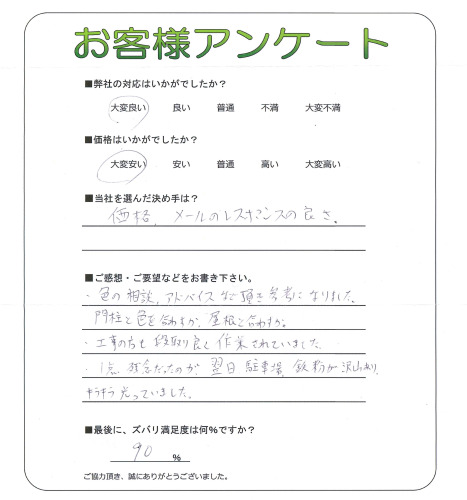 お客様アンケート
■弊社の対応はいかがでしたか？
大変良い 良い 普通 不満 大変不満
■価格はいかがでしたか？
大変安い 安い 普通 高い 大変高い
■当社を選んだ決め手は？
価格、メールのレスポンスの良さ。
■ご感想・ご要望などをお書き下さい。
・色の相談、アドバイスなど頂き参考になりました。
門柱と色を合わすか、屋根と合わすか。
・工事の方も段取り良く作業されていました。
・1点残念だったのが、翌日駐車場、鉄粉が沢山あり、
キラキラ光っていました。
■最後に、ズバリ満足度は何％ですか？
90 ％
ご協力頂き、誠にありがとうございました。